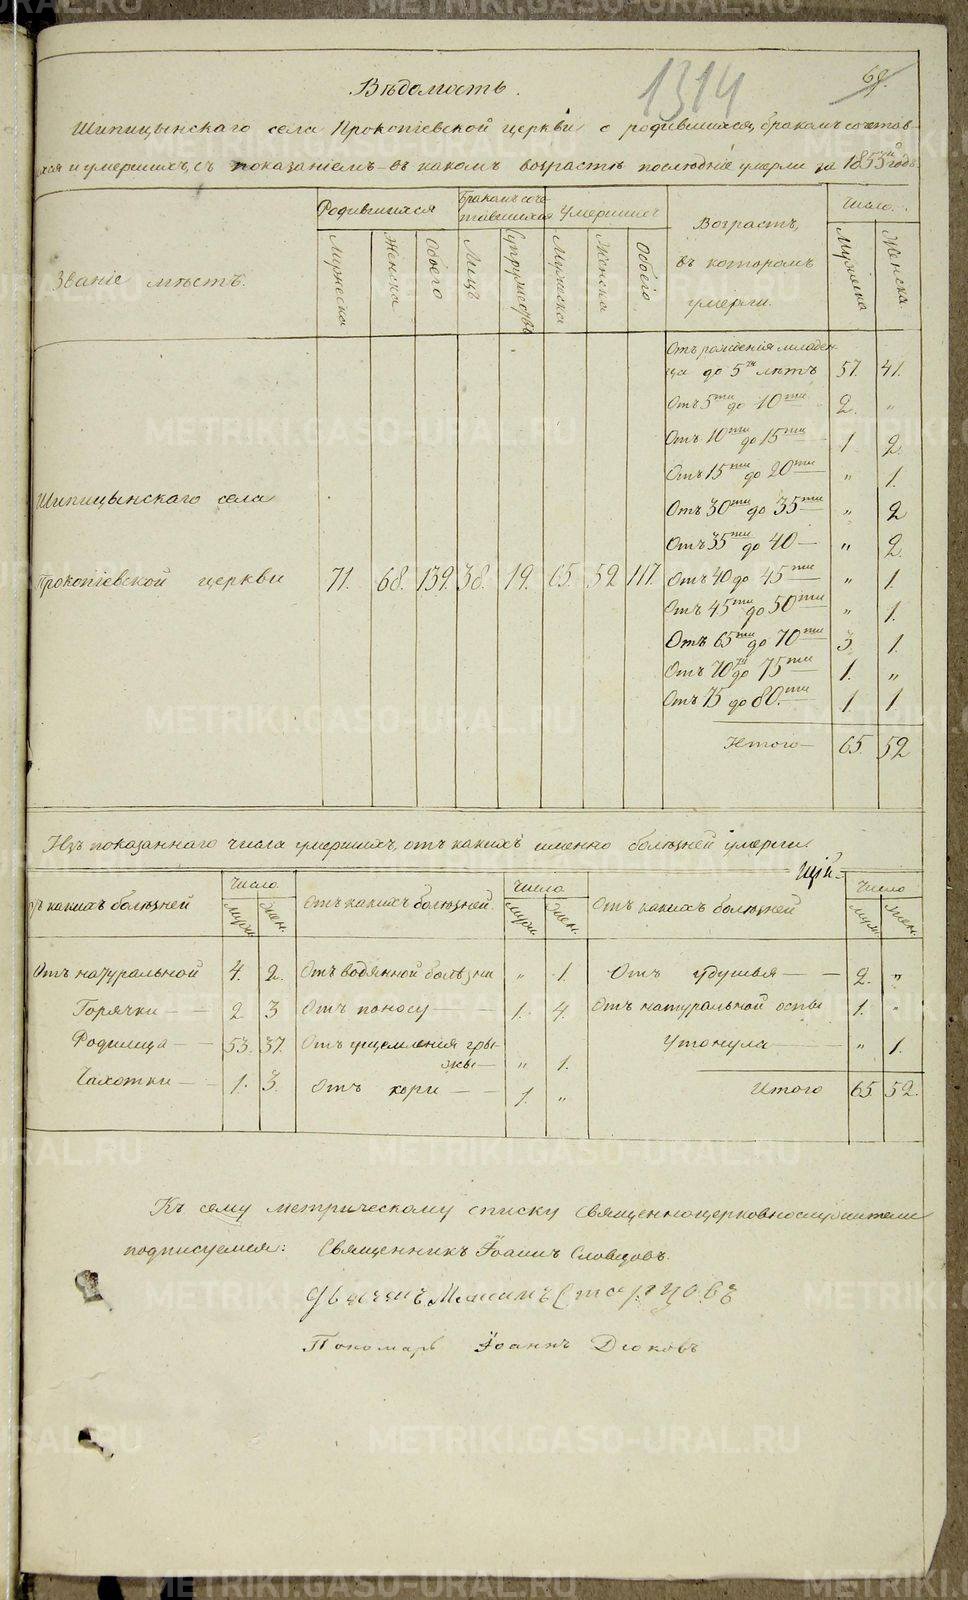 1314
69.
Вѣдомость.
Шипицынскаго села Прокопіевской церкви о родившихся, бракомъ сочетав-
хся и умершихъ, съ показаніемъ въ какомъ возрастѣ послюдніе умерли за 1853й годъ
Званіе мѣстъ.
Родившихся
Бракомъ соче-
тавшихся
Умершихъ
Возрастъ,
въ которомъ
умерли.
Число.
Мужеска
Женска
Обоего
Лицъ
Супружествъ
Мужеска
Женска
Обоего
Мужеска
Женска
Шипицынскаго села
Прокопіевской церкви 71. 68. 139. 38. 19. 65. 52 117.
Отъ рожденія младен-
ца до 5ти лѣтъ 57. 41.
Отъ 5ти до 10ти 2. "
Отъ 10ти до 15ти 1. 2.
Отъ 15ти до 20ти " 1.
Отъ 30ти до 35ти " 2
Отъ 35ти до 40 — " 2.
Отъ 40 до 45ти " 1.
Отъ 45ти до 50ти " 1.
Отъ 65ти до 70ти 3. 1.
Отъ 70ти до 75ти 1. "
Отъ 75 до 80.ти 1. 1.
Итого — 65. 52
Изъ показаннаго числа умершихъ, отъ какихъ именно болѣзней умерли.
ъ какихъ болѣзней
Число
Муж.
Жен.
Отъ какихъ болѣзней.
Число
Муж.
Жен.
Отъ какихъ болѣзней
Число
Муж.
Жен.
Отъ натуральной 4. 2. Отъ водянной болѣзни " 1. Отъ удушья — — 2. "
Горячки — — 2 3 Отъ поносу — — 1. 4. Отъ натуральной оспы 1. "
Родимца — — 53. 37. Отъ ущемленія гры-
жи — " 1. Утонула — — " 1.
Чахотки — — 1. 3. Отъ кори — — 1. " Итого 65 52.
Къ сему метрическому списку священноцерковнослужители
подписуемся: Священникъ Іоаннъ Словцовъ.
Пономарь Іоаннъ Дюковъ
METRIKI.GASO-URAL.RU